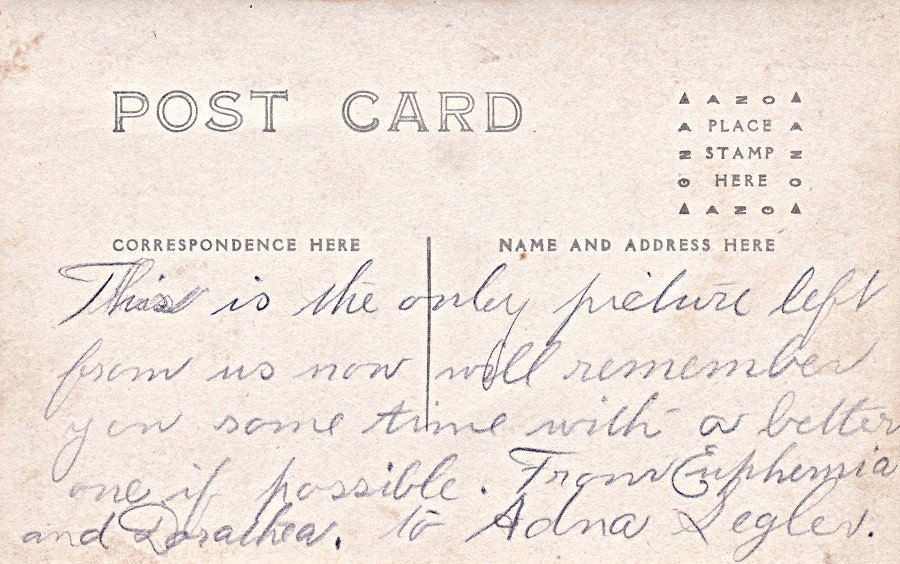 POST CARD
▲ A Z O ▲
A PLACE A
Z STAMP Z
O HERE O
▲ A Z O ▲
CORRESPONDENCE HERE
NAME AND ADDRESS HERE
This is the only picture left
from us now will remember
you some time with a better
one if possible. From Euphemia
and Dorathea. to Adna Legler.